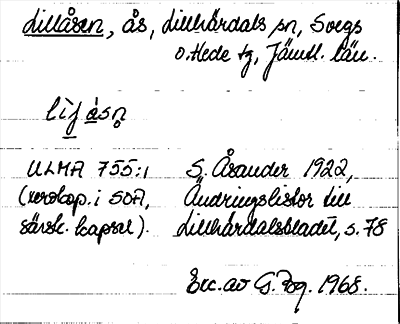 Lillåsen, ås, Lillhärdals sn, Svegs
o. Hede tg, Jämtl. län.
li̱f a̱sn̥
ULMA 755:1 S. Åsander 1922,
(xerokop. i SOA, Ändringslistor till
särsk. kapsel). Lillhärdalsbladet, s. 78
Exc. av G. Rog. 1968.